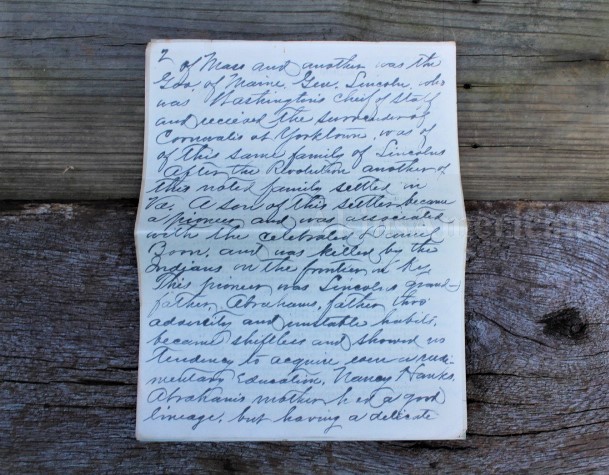 2
of Mass and another was the
Gov. of Maine. Gen. Lincoln, who
was Washington's chief of staff
and received the surrender of
Cornwalis at Yorktown, was of
of this same family of Lincolns
After the Revolution another of
this noted family settled in
Va. A son of this settler became
a pioneer and was associated
with the celebrated Daniel
Boon, and was killed by the
Indians on the frontier in Ky.
This pioneer was Lincoln's grand-
father, Abrahams, father thro'
adversity and unstable habits,
became shiftless and showed no
tendency to acquire even a rudi-
mentary Education. Nancy Hanks.
Abraham's mother had a good
lineage, but having a delicate